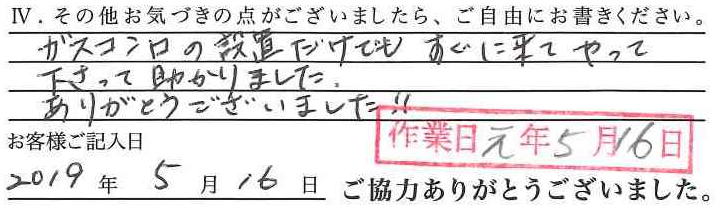 Ⅳ．その他お気づきの点がございましたら、ご自由にお書きください。
ガスコンロの設置だけでも すぐに来て やって
下さって 助かりました.
ありがとうございました!!
お客様ご記入日
作業日 元年5月16日
2019年 5月16日 ご協力ありがとうございました。